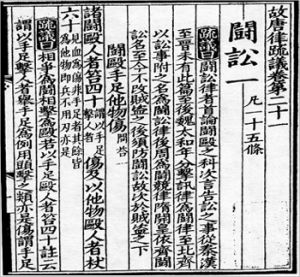 故唐律疏議卷第二十一
鬭訟一 凡一十五條
疏議曰鬭訟律者首論鬭毆之科次言告訟之事從秦漢
至晉未有此篇至後魏太和年分擊訊律爲鬭律至北齊
以訟事附之名爲鬭訟律後周爲鬭競律隋開皇依齊鬭
訟名至今不改賊盜之後須防鬭訟故次於賊盜之下
鬭毆手足他物傷 問答一
諸鬭毆人者笞四十 謂以手足擊人者 傷及以他物毆人者杖
六十 見血爲傷非手足者其餘皆爲他物即兵不用刃亦是
疏議曰相爭爲鬭相擊爲毆若以手足毆人者笞四十註云
謂以手足擊人者舉手足爲例用頭擊之類亦是傷謂手足